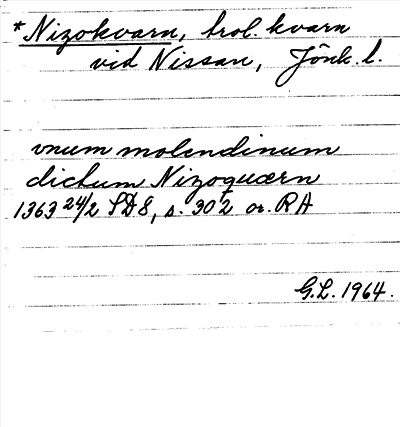 * Nizokvarn, trol. kvarn
vid Nissan, Jönk. l.
vnum molendinum
dictum Nizoquærn
1363 24/2 SD8, s. 302 or. RA
G.L. 1964.